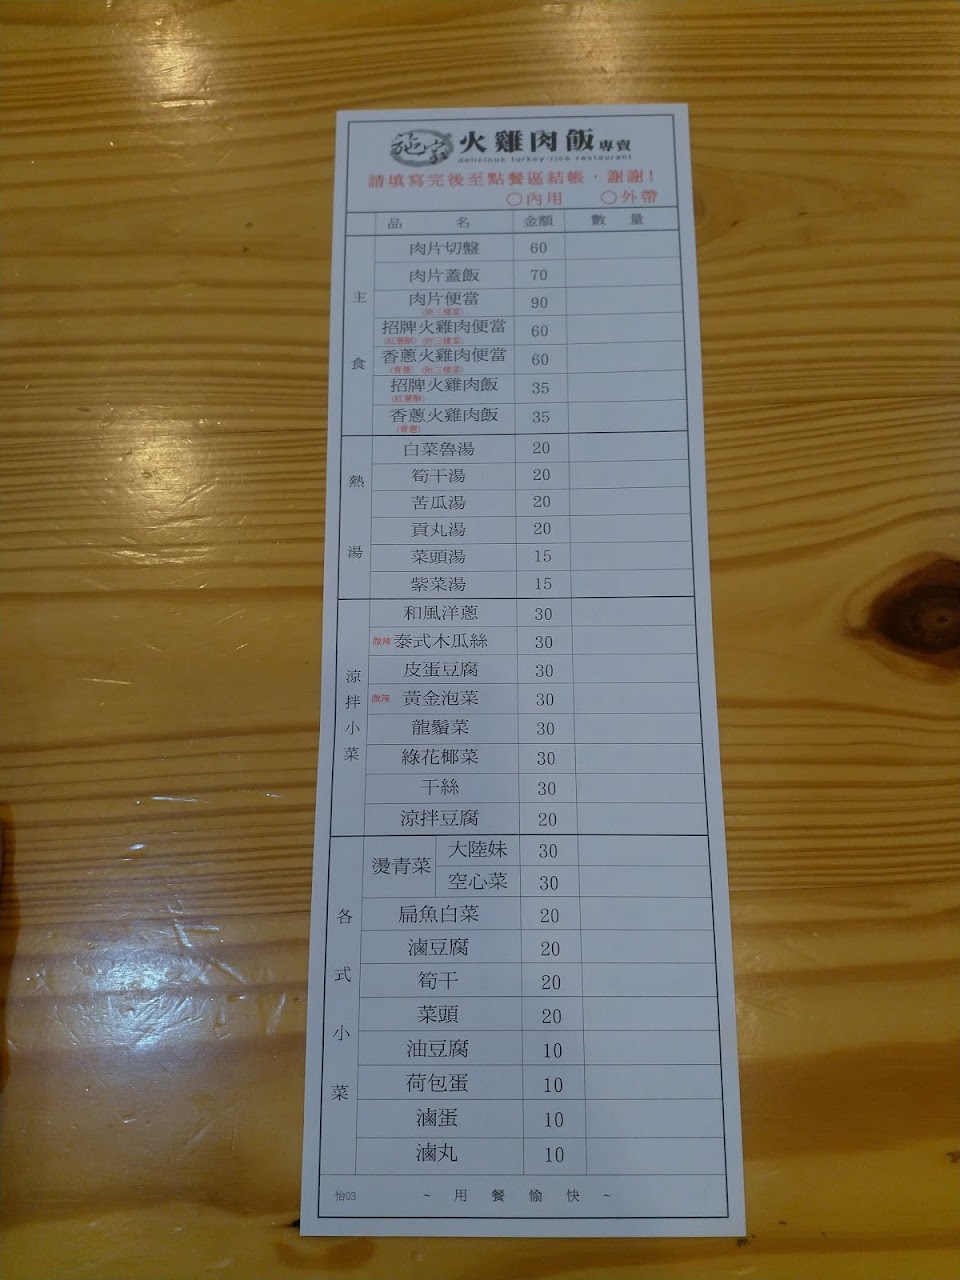 施家 火雞肉飯 專賣
delicious turkey-rice restaurant
請填寫完後至點餐區結帳，謝謝！
○內用 ○外帶
品名 金額 數量
主食
肉片切盤 60
肉片蓋飯 70
肉片便當 90
(附三樣菜)
招牌火雞肉便當 60
(紅蔥酥) (附三樣菜)
香蔥火雞肉便當 60
(青蔥) (附三樣菜)
招牌火雞肉飯 35
(紅蔥酥)
香蔥火雞肉飯 35
(青蔥)
熱湯
白菜魯湯 20
筍干湯 20
苦瓜湯 20
貢丸湯 20
菜頭湯 15
紫菜湯 15
涼拌小菜
和風洋蔥 30
微辣 泰式木瓜絲 30
皮蛋豆腐 30
微辣 黃金泡菜 30
龍鬚菜 30
綠花椰菜 30
干絲 30
涼拌豆腐 20
各式小菜
燙青菜 大陸妹 30
空心菜 30
扁魚白菜 20
滷豆腐 20
筍干 20
菜頭 20
油豆腐 10
荷包蛋 10
滷蛋 10
滷丸 10
怡03 ~用餐愉快~